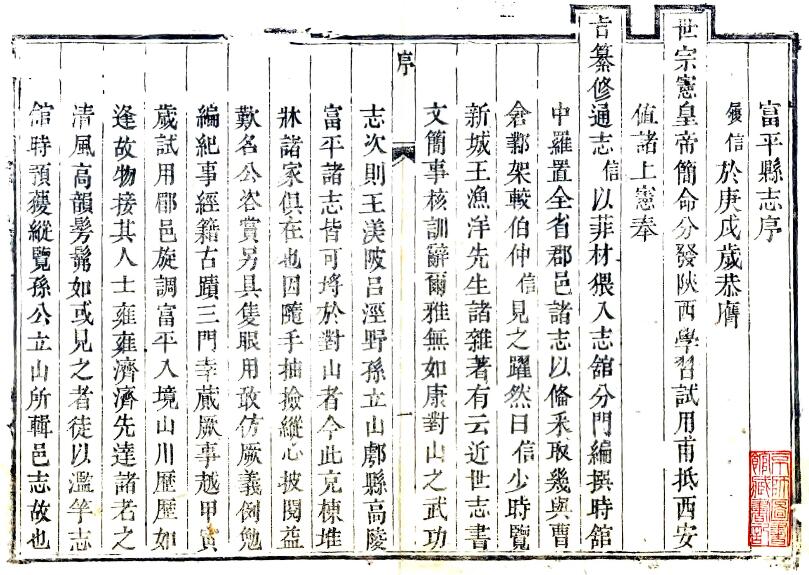 富平縣志序
履信於庚戌歲恭膺
世宗憲皇帝簡命分發陝西學習試用甫抵西安
值諸上憲奉
旨纂修通志信以菲材猥入志舘分門編撰時舘
中羅置全省郡邑諸志以俻采取幾與曹
倉鄴架較伯仲信見之躍然曰信少時覽
新城王漁洋先生諸雜著有云近世志書
文簡事核訓辭爾雅無如康對山之武功
序
一
志次則王渼陂吕涇野孫立山鄠縣高陵
富平諸志皆可埓於對山者今此充棟堆
牀諸家俱在也因隨手抽撿縱心披閱益
歎名公咨賞另具隻眼用敢仿厥義例勉
編紀事經籍古蹟三門幸蕆厥事越甲寅
歲試用郿邑旋調富平入境山川歷歷如
逢故物接其人士雍雍濟濟先達諸君之
清風高韻髣髴如或見之者徒以濫竽志
舘時預獲縱覽孫公立山所輯邑志故也